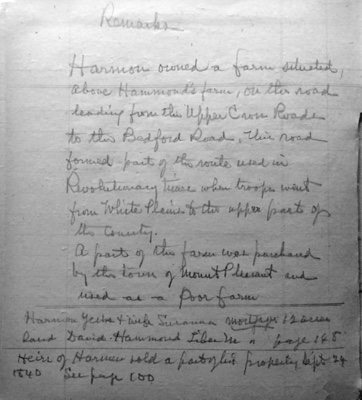 Remarks
Harmon owned a farm situated,
above Hammond's farm, on the road
leading from the Upper Cross Roads
to the Bedford Road, this road
formed part of the route used in
Revolutionary times when troops went
from White Plains to the upper parts of
the County.
A part of the farm was purchased
by the town of Mount Pleasant and
used as a Poor farm
Harmon & wife Susanna mortgage 12 acres
land David Hammond Liber M page 185
Heirs of Harmon sold a part of his property Sept. 24
1840 See page 100